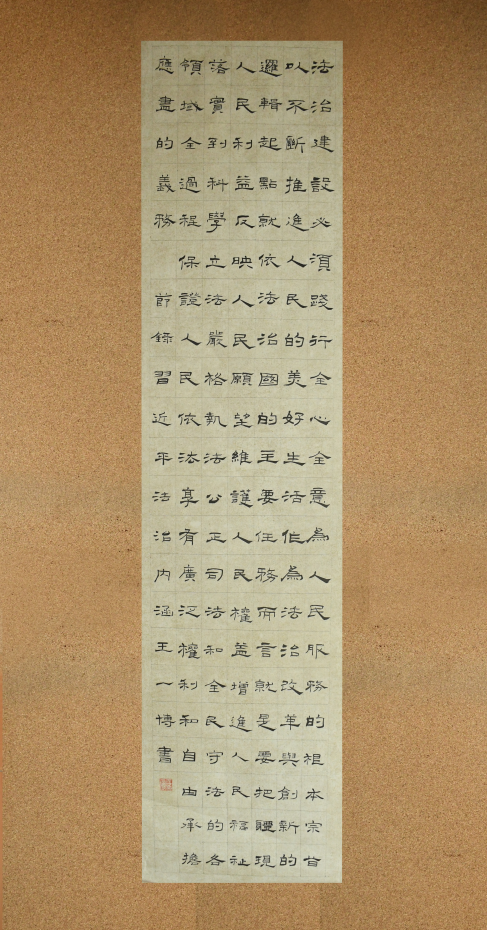 法治建設必須踐行全心全意為人民服務的根本宗旨
以不斷推進人民的美好生活作為法治改革與創新的
邏輯起點就依法治國的主要任務而言就是要把體現
人民利益反映人民願望維護人民權益增進人民福祉
落實到科學立法嚴格執法公正司法和全民守法的各
領域全過程保證人民依法享有廣泛權利和自由承擔
應盡的義務 節錄習近平法治內涵王一博書